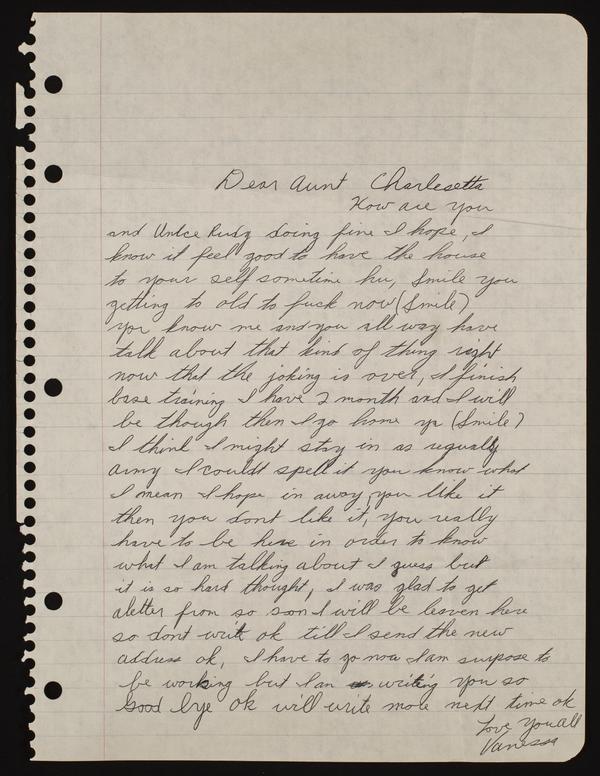 Dear Aunt Charlesetta
How are you
and Unlce Rudy doing fine I hope, I
know it feel good to have the house
to your self sometime hu, Smile you
getting to old to fuck now (Smile)
you know me and you all way have
talk about that kind of thing right
now that the joking is over, I finish
base training I have 2 month and I will
be though then I go home ya (Smile)
I think I might stay in as regually
army I couldt spell it you know what
I mean I hope in away, you like it
then you dont like it, you really
have to be here in order to know
what I am talking about I guess but
it is so hard thought, I was glad to get
aletter from so son I will be leaven here
so dont write ok till I send the new
address ok, I have to go now I am surpose to
be working but I an writeing you so
Good bye ok will write more next time ok
Love You all
Vanessa